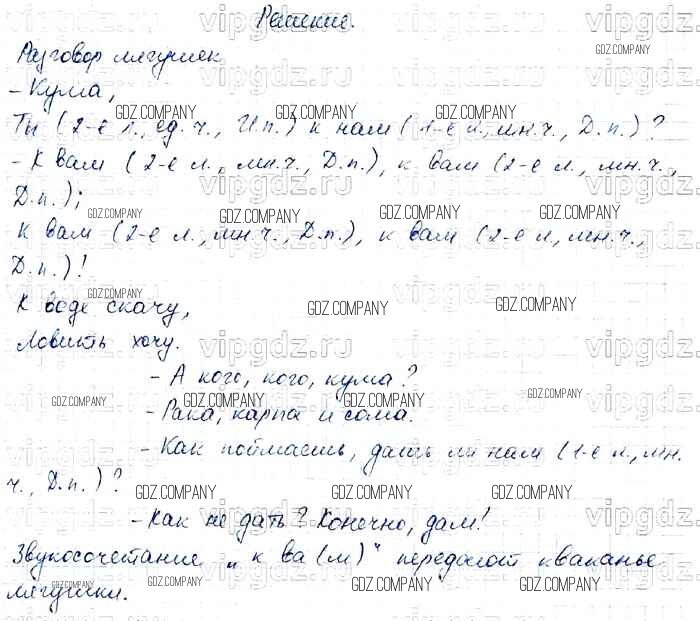 Решение.
Разговор лягушек
- Кума,
Ты (2-е л., ед. ч., И.п.) к нам (1-е л., мн.ч., Д.п.)?
- К вам (2-е л., мн.ч., Д.п.), к вам (2-е л., мн.ч.,
Д.п.);
К вам (2-е л., мн.ч., Д.п.), к вам (2-е л., мн.ч.,
Д.п.)!
К воде скачу,
Ловить хочу.
- А кого, кого, кума?
- Рака, карпа и сома.
- Как поймаешь, дашь ли нам (1-е л., мн.
ч., Д.п.)?
- Как не дать? Конечно, дам!
Звукосочетание „к ва(м)" передает кваканье
лягушки.